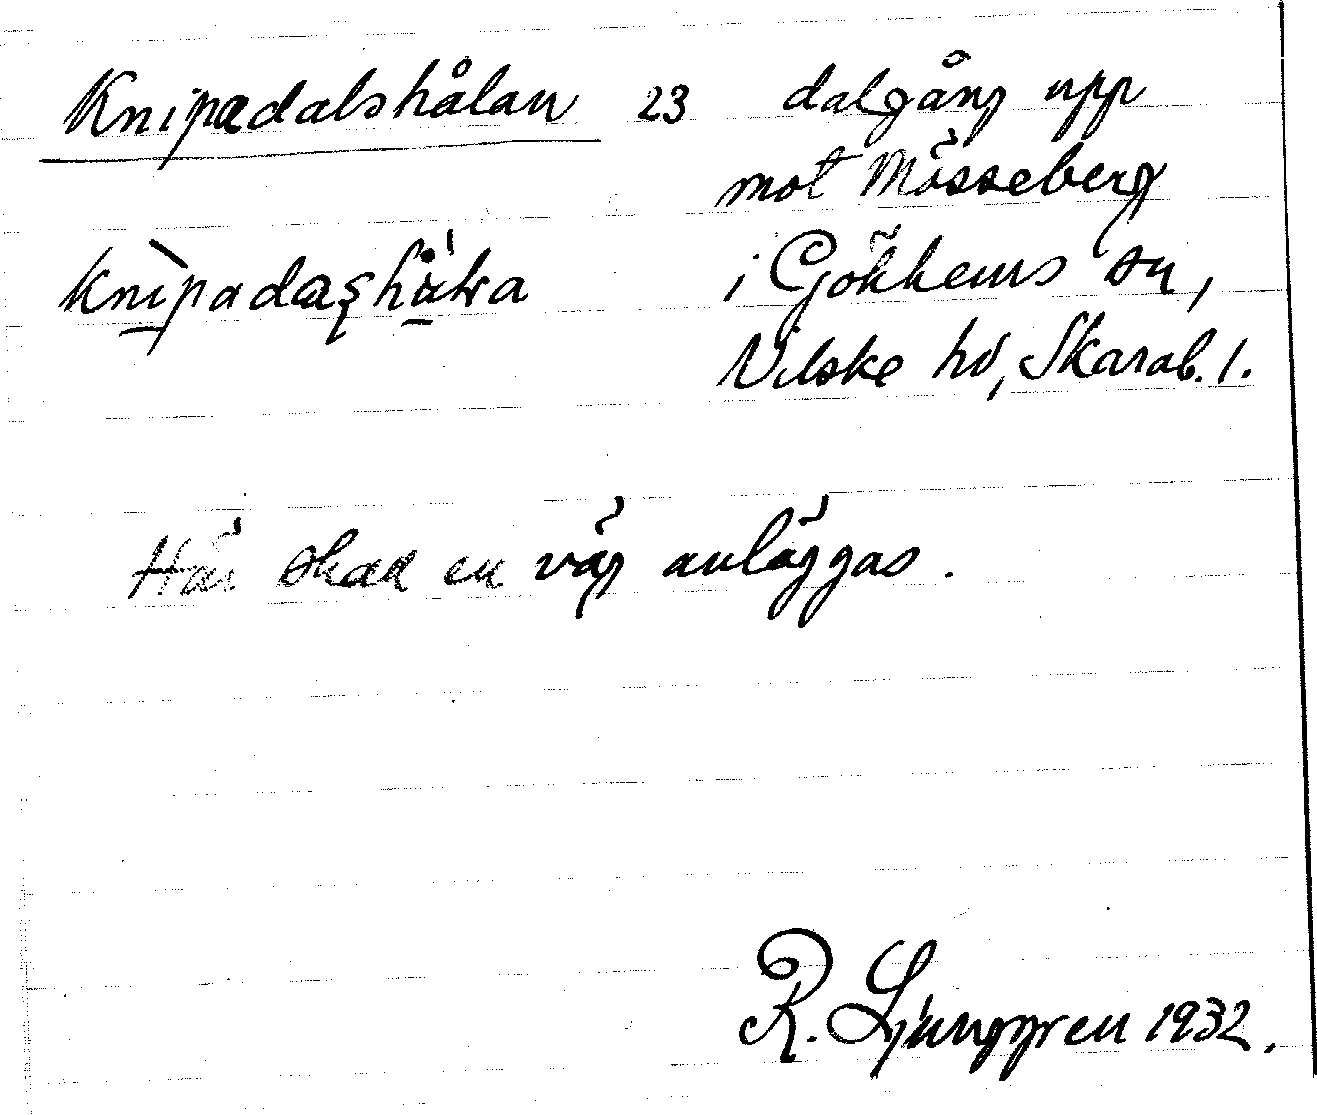 Knipadalshålan 23 dalgång upp
mot Mösseberg
i Gökhems sn,
Vilske hd, Skarab. l.
Här skall en väg anläggas.
R. Ljunggren 1932.